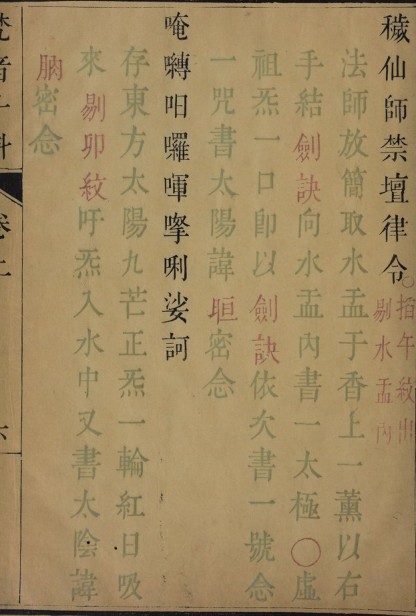 穢仙師禁壇律令
掐午紋出
剔水盂內
法師放簡取水盂于香上一薰以右
手結劍訣向水盂內書一太極〇虛
祖炁一口即以劍訣依次書一號念
一咒書太陽諱䀍密念
唵囀㕽囉㖶㨮唎娑訶
存東方太陽九芒正炁一輪紅日吸
來剔卯紋吁炁入水中又書太陰諱
密念
卷上
六